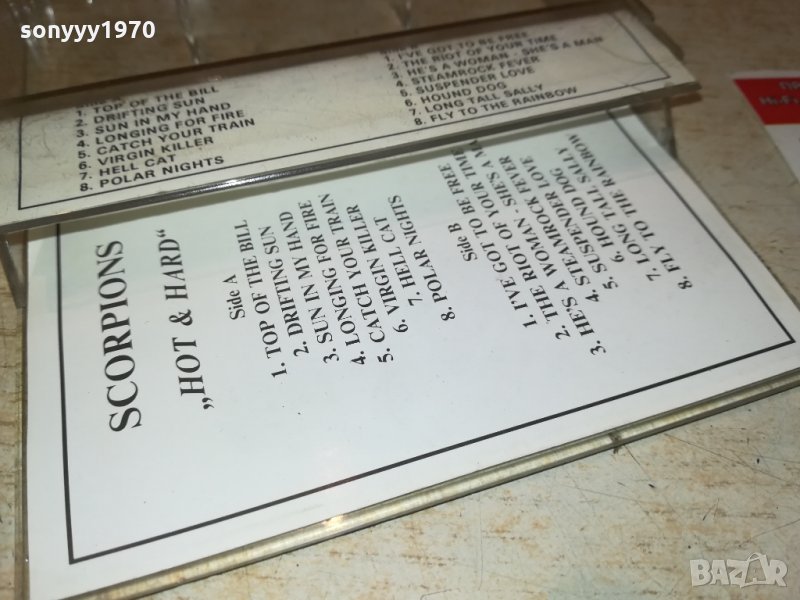 sonyyy1970
1. TOP OF THE BILL
2. DRIFTING SUN
3. SUN IN MY HAND
4. LONGING FOR FIRE
5. CATCH YOUR TRAIN
6. VIRGIN KILLER
7. HELL CAT
8. POLAR NIGHTS
1. I'VE GOT TO BE FREE
2. THE RIOT OF YOUR TIME
3. HE'S A WOMAN - SHE'S A MAN
4. STEAMROCK FEVER
5. SUSPENDER LOVE
6. HOUND DOG
7. LONG TALL SALLY
8. FLY TO THE RAINBOW
SCORPIONS
„HOT & HARD“
Side A
1. TOP OF THE BILL
2. DRIFTING SUN
3. SUN IN MY HAND
4. LONGING FOR FIRE
5. CATCH YOUR TRAIN
6. VIRGIN KILLER
7. HELL CAT
8. POLAR NIGHTS
Side B
1. I'VE GOT TO BE FREE
2. THE RIOT OF YOUR TIME
3. HE'S A WOMAN - SHE'S A MA
4. STEAMROCK FEVER
5. SUSPENDER LOVE
6. HOUND DOG
7. LONG TALL SALLY
8. FLY TO THE RAINBOW
BAZAR